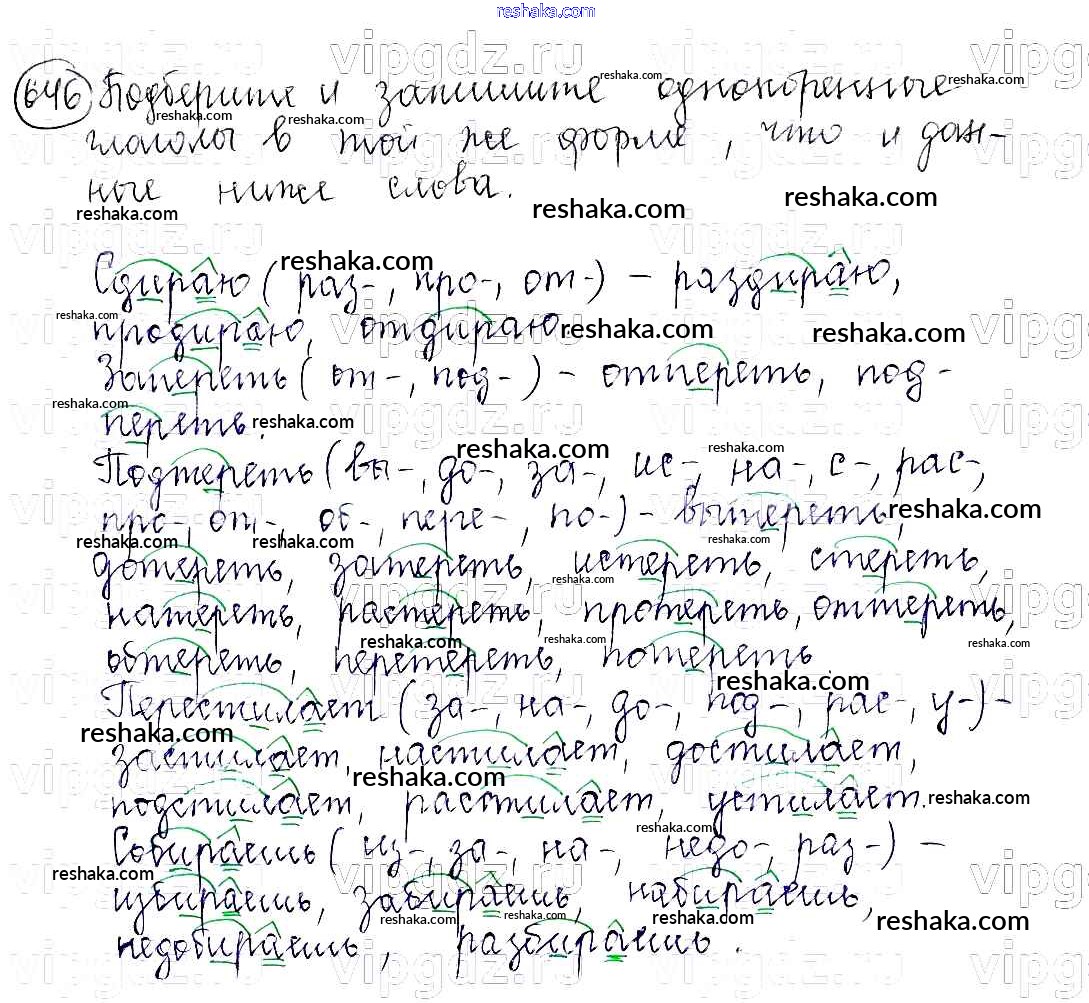 reshaka.com
646 Подберите и запишите однокоренные
глаголы в той же форме, что и дан-
ные ниже слова.
Сдираю (раз-, про-, от-) - раздираю,
продираю, отдираю.
Запереть (от-, под-) - отпереть, под-
переть.
Подтереть (вы-, до-, за-, ис-, на-, с-, рас-,
про-, от-, об-, пере-, по-) - вытереть,
дотереть, затереть, истереть, стереть,
натереть, растереть, протереть, оттереть,
обтереть, перетереть, потереть
Перестилает (за-, на-, до-, под-, рас-, у-) -
застилает, настилает, достилает,
подстилает, расстилает, устилает.
Собираешь (из-, за-, на-, недо-, раз-) -
избираешь, забираешь, набираешь,
недобираешь, разбираешь.